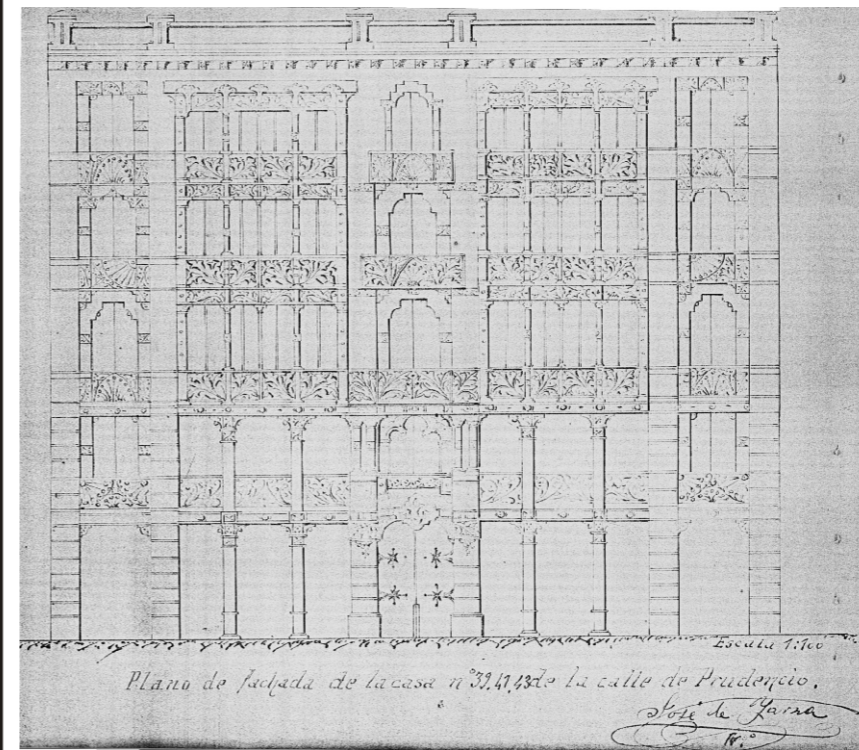 Escala 1:100
Plano de fachada de la casa nº 39, 41, 43 de la calle de Prudencio.
José de Yarza